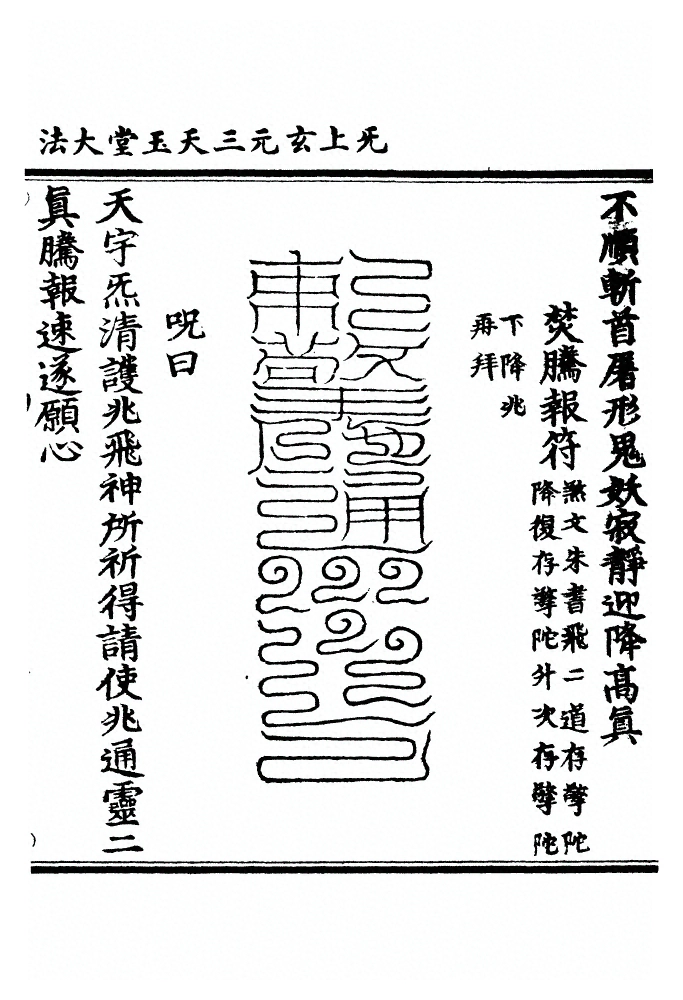 旡上玄元三天玉堂大法
不順斬首屠形鬼妖寂靜迎降高眞
焚騰報符
文朱書飛二道存擎陀
降復存擎陀外次存擎陀
下降兆
再拜
呪曰
天宇炁清護兆飛神所祈得請使兆通靈二
眞騰報速遂願心